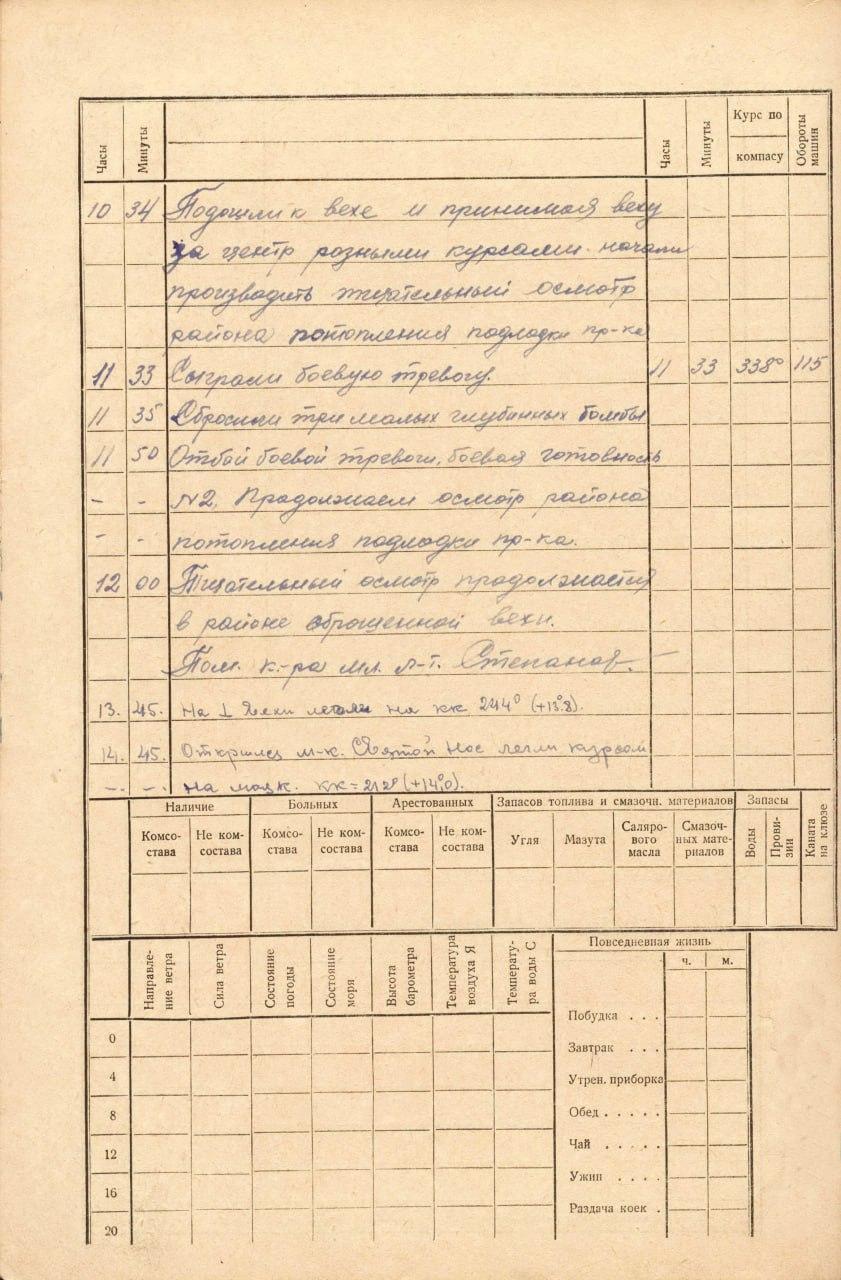 Часы Минуты Часы Минуты Курс по компасу Обороты машин
10 34 Подошли к вехе и принимая веху
за центр розными курсами начали
производить тщательный осмотр
района потопления подлодки пр-ка
11 33 Сыграли боевую тревогу. 11 33 338° 115
11 35 Сбросили три малых глубинных бомбы
11 50 Отбой боевой тревоги, боевая готовность
- - №2. Продолжаем осмотр района
- - потопления подлодки пр-ка.
12 00 Тщательный осмотр продолжается
в районе сброшенной вехи.
Пом. к-ра мл. л-т. Степанов.
13. 45. На ⊥ вехи легли на кк 244° (+13°,8).
14. 45. Открылся м-к. Святой Нос легли курсом
-. -. на маяк. кк=212° (+14°,0).
Наличие Больных Арестованных Запасов топлива и смазочн. материалов Запасы Каната на клюзе
Комсостава Не комсостава Комсостава Не комсостава Комсостава Не комсостава Угля Мазута Салярового масла Смазочных материалов Воды Провизии
Направление ветра Сила ветра Состояние погоды Состояние моря Высота барометра Температура воздуха Я Температура воды С Повседневная жизнь
ч. м.
Побудка . . .
0
Завтрак . . .
4 Утрен. приборка
8 Обед . . . . .
Чай . . . . .
12
Ужин . . . .
16
Раздача коек .
20